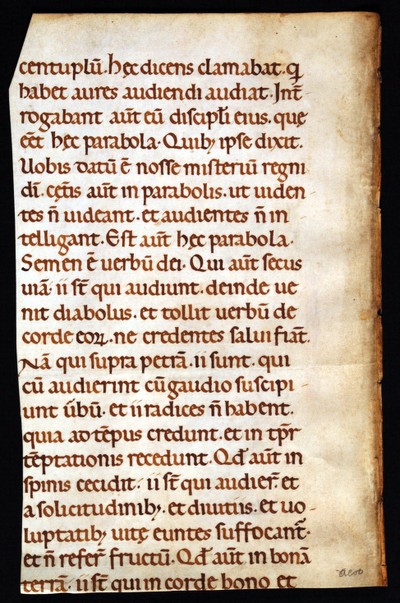 centuplū. hęc dicens clamabat. qi
habet aures audiendi audiat. Int̄
rogabant aūt eū discipli eius. quę
eēt hęc parabola. Quibȝ ipse dixit.
Uobis datū ē nosse misteriū regni
dī. cet̄is aūt in parabolis. ut uiden
tes n̄ uideant. et audientes n̄ in
telligant. Est aūt hęc parabola.
Semen ē uerbū dei. Qui aūt secus
uiā. ii st̄ qui audiunt. deinde ue
nit diabolus. et tollit uerbū de
corde eoꝝ. ne credentes salui fiāt.
Nā qui supra petrā. ii sunt. qui
cū audierint cū gaudio suscipi
unt ūbū. et ii radices n̄ habent.
quia ad tēpus credunt. et in tp̄r
tēptationis recedunt. Qd̄ aūt in
spinis cecidit. ii st̄ qui audier̄. et
a solicitudinibȝ. et diuitiis. et uo
luptatibȝ uitę euntes suffocant̄.
et n̄ refer̄ fructū. Qd̄ aūt in bonā
terrā. ii st̄ qui in corde bono et